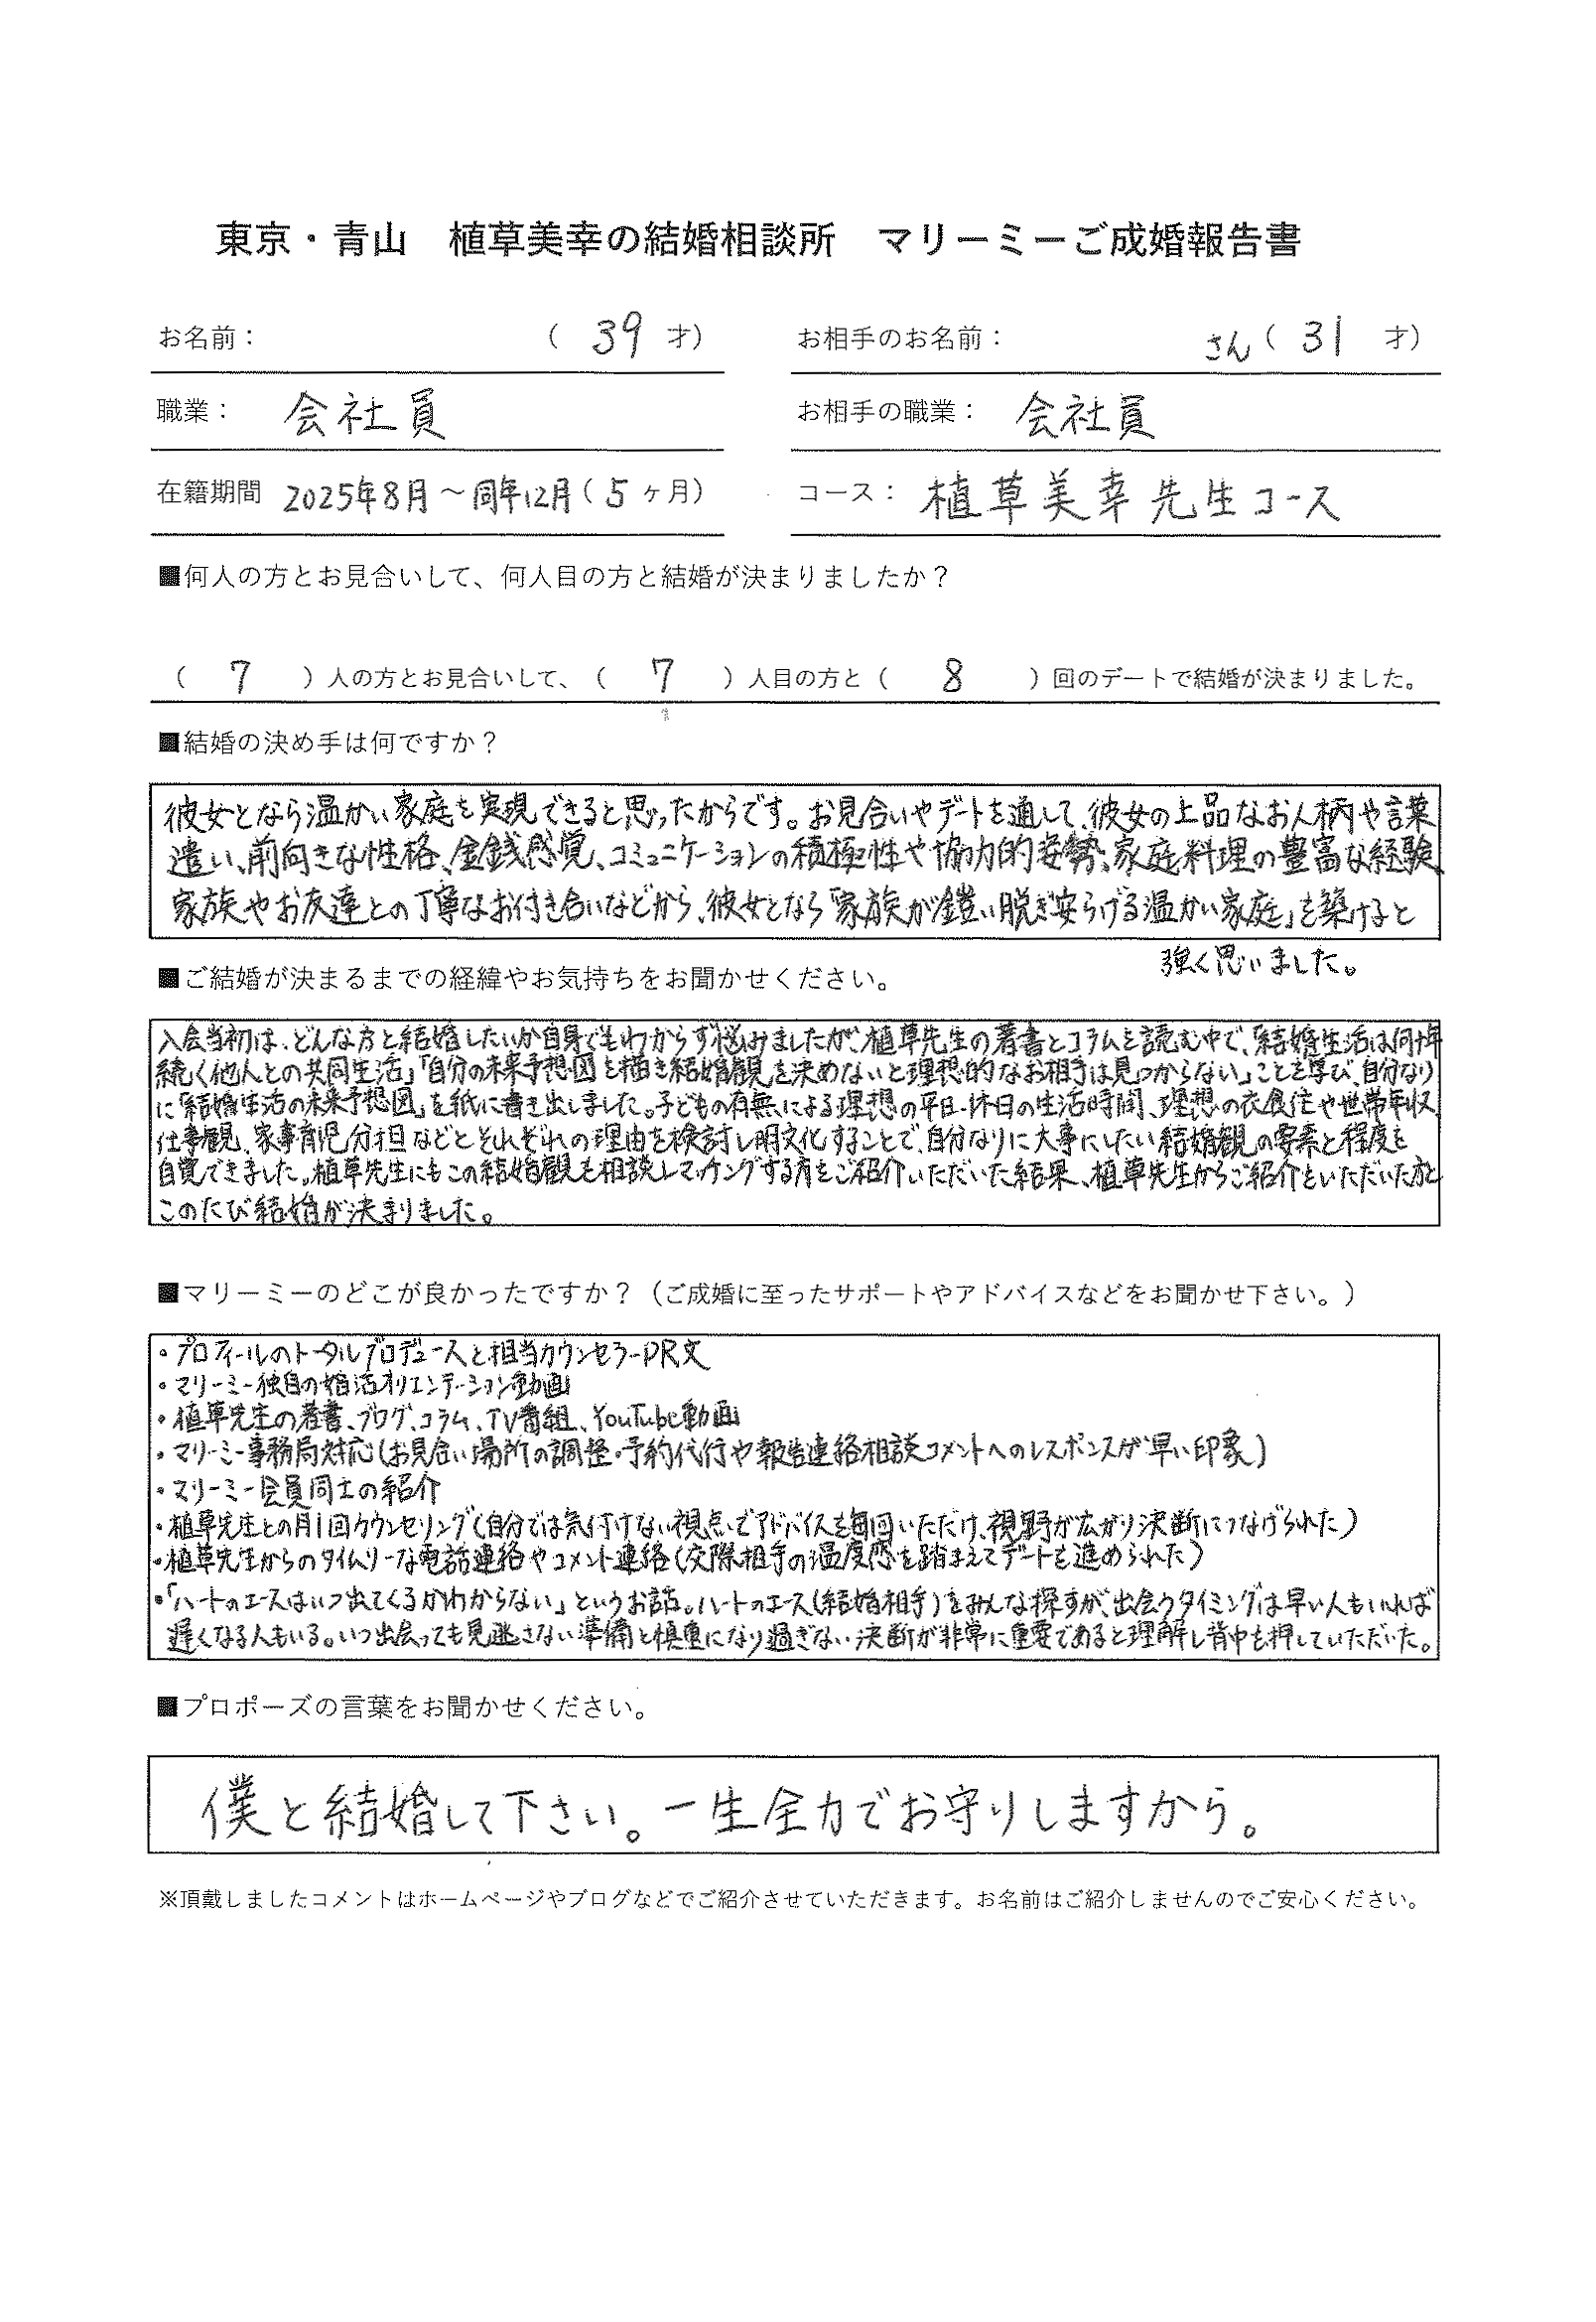 東京・青山　植草美幸の結婚相談所　マリーミーご成婚報告書
お名前：　（ 39 才）　お相手のお名前：　さん（ 31 才）
職業：　会社員　お相手の職業：　会社員
在籍期間　2025年8月～同年12月（ 5 ヶ月）　コース：　植草美幸先生コース
■何人の方とお見合いして、何人目の方と結婚が決まりましたか？
（ 7 ）人の方とお見合いして、（ 7 ）人目の方と（ 8 ）回のデートで結婚が決まりました。
■結婚の決め手は何ですか？
彼女となら温かい家庭を実現できると思ったからです。お見合いやデートを通して、彼女の上品なお人柄や言葉
遣い、前向きな性格、金銭感覚、コミュニケーションの積極性や協力的姿勢、家庭料理の豊富な経験、
家族やお友達との丁寧なお付き合いなどから、彼女となら「家族が鎧い脱ぎ安らげる温かい家庭」を築けると
強く思いました。
■ご結婚が決まるまでの経緯やお気持ちをお聞かせください。
入会当初は、どんな方と結婚したいか自身でもわからず悩みましたが、植草先生の著書とコラムを読む中で、「結婚生活は何十年
続く他人との共同生活」「自分の未来予想図を描き結婚観を決めないと理想的なお相手は見つからない」ことを学び、自分なり
に「結婚生活の未来予想図」を紙に書き出しました。子どもの有無による理想の平日・休日の生活時間、理想の衣食住や世帯年収、
仕事観、家事育児分担などとそれぞれの理由を検討し明文化することで、自分なりに大事にしたい結婚観の要素と程度を
自覚できました。植草先生にもこの結婚観を相談しマッチングする方をご紹介いただいた結果、植草先生からご紹介をいただいた方と
このたび結婚が決まりました。
■マリーミーのどこが良かったですか？（ご成婚に至ったサポートやアドバイスなどをお聞かせ下さい。）
・プロフィールのトータルプロデュースと担当カウンセラーPR文
・マリーミー独自の婚活オリエンテーション動画
・植草先生の著書、ブログ、コラム、TV番組、YouTube動画
・マリーミー事務局対応（お見合い場所の調整・予約代行や報告連絡相談コメントへのレスポンスが早い印象）
・マリーミー会員同士の紹介
・植草先生との月1回カウンセリング（自分では気付けない視点でアドバイスを毎回いただけ、視野が広がり決断につなげられた）
・植草先生からのタイムリーな電話連絡やコメント連絡（交際相手の温度感を踏まえてデートを進められた）
・「ハートのエースはいつ出てくるかわからない」というお話。ハートのエース（結婚相手）をみんな探すが、出会うタイミングは早い人もいれば
遅くなる人もいる。いつ出会っても見逃さない準備と慎重になり過ぎない決断が非常に重要であると理解し背中を押していただいた。
■プロポーズの言葉をお聞かせください。
僕と結婚して下さい。一生全力でお守りしますから。
※頂戴しましたコメントはホームページやブログなどでご紹介させていただきます。お名前はご紹介しませんのでご安心ください。